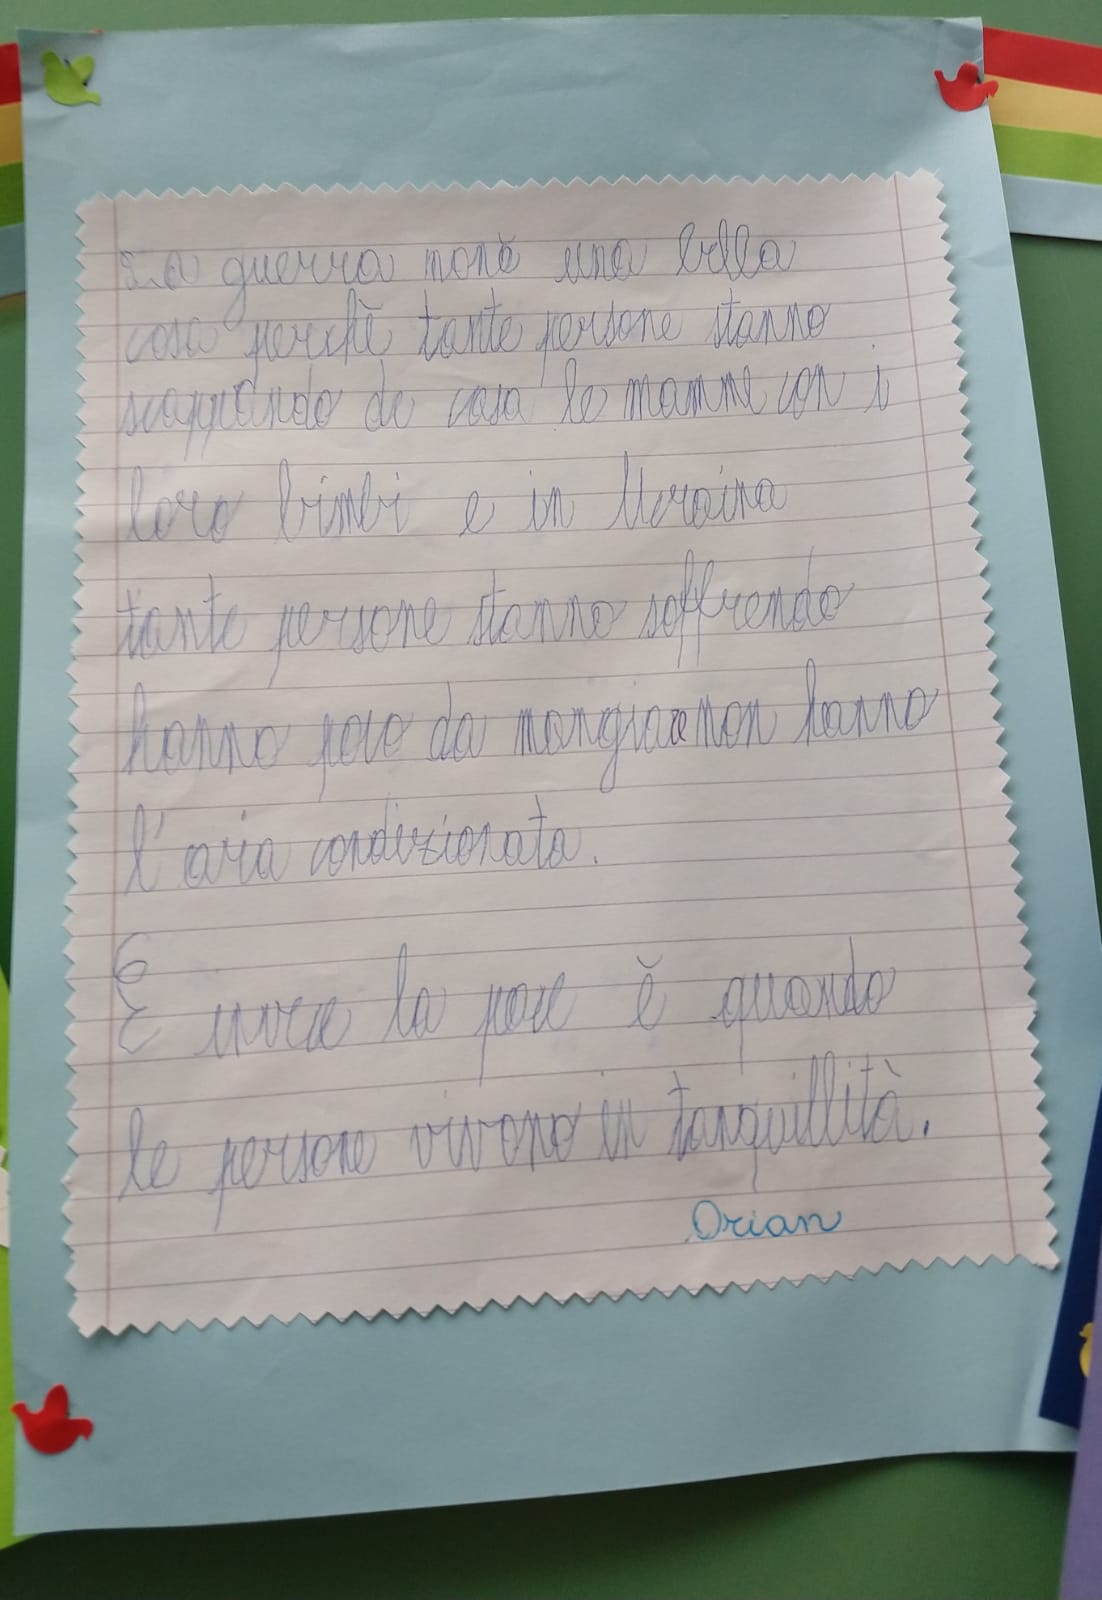 La guerra nonè una bella
cosa perchè tante persone stanno
scappando da casa le mamme con i
loro bimbi e in Ucraina
tante persone stanno soffrendo
hanno poco da mangiare non hanno
l'aria condizionata.
E invece la pace è quando
le persone vivono in tanquillità.
Orian